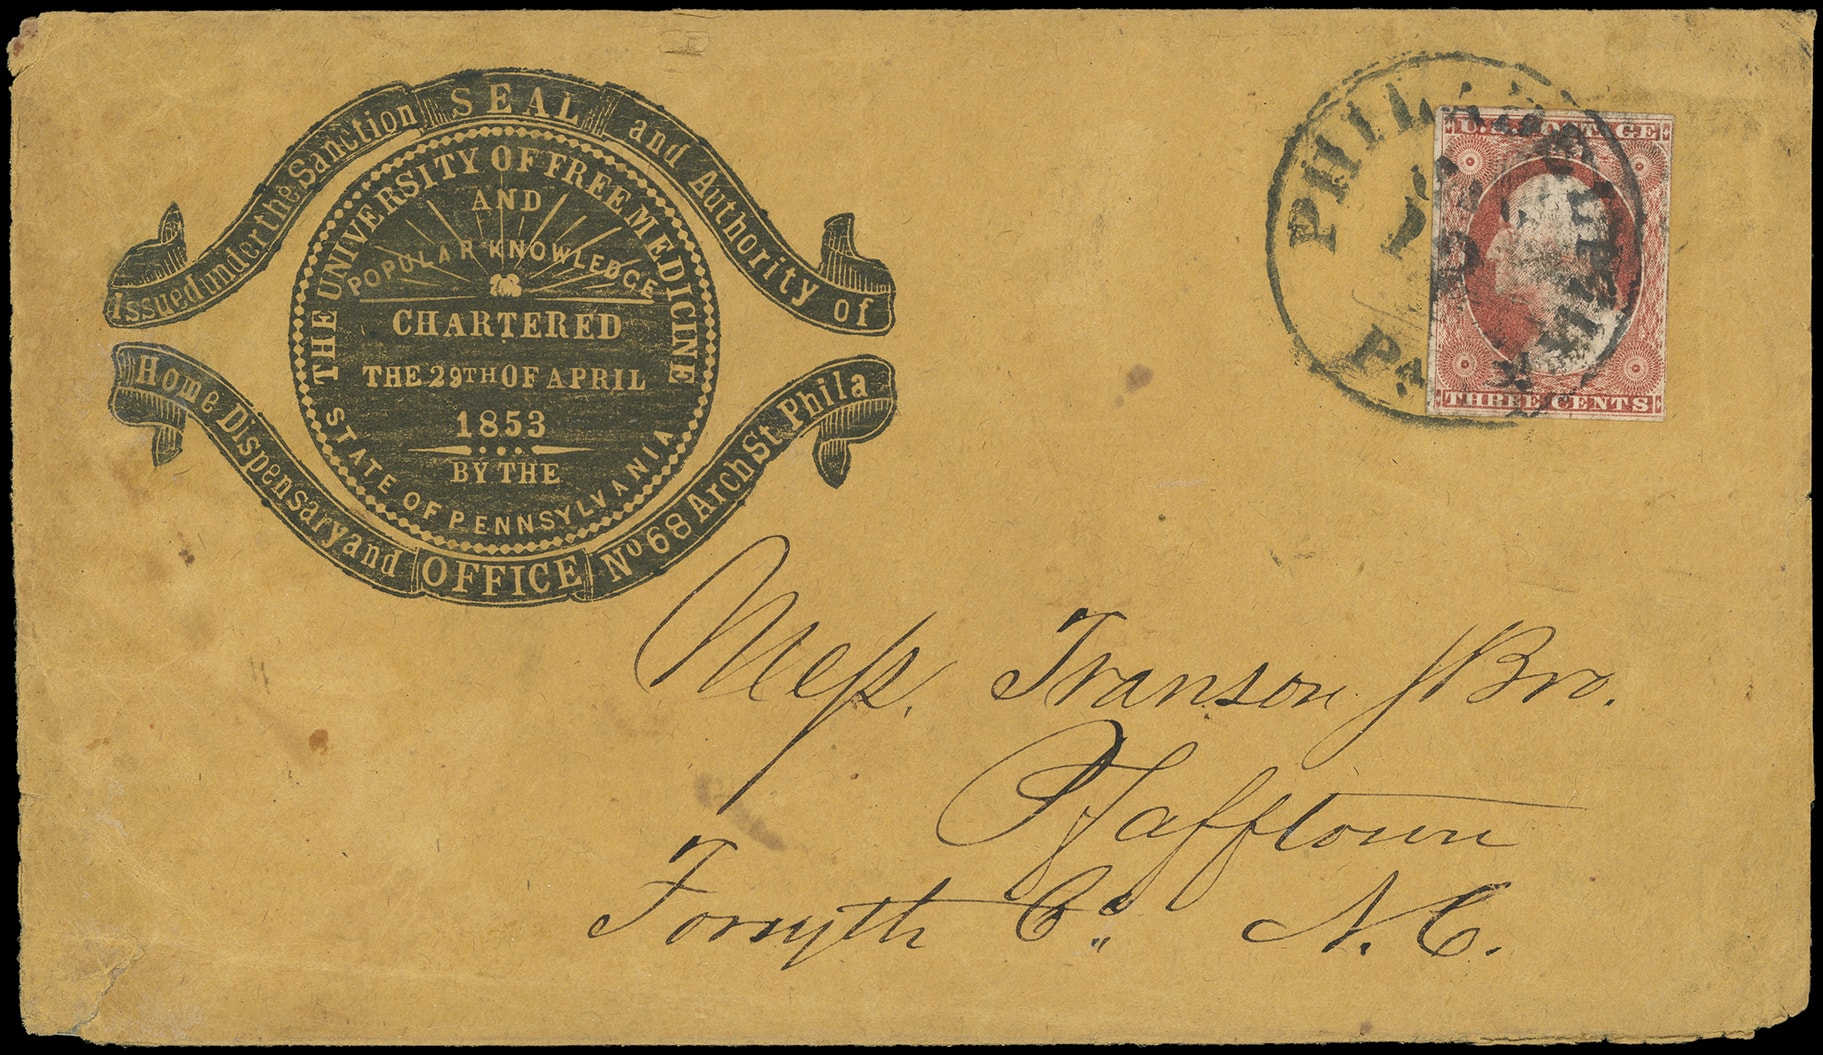 Issued under the Sanction SEAL and Authority of
THE UNIVERSITY OF FREE MEDICINE
AND
POPULAR KNOWLEDGE
CHARTERED
THE 29TH OF APRIL
1853
BY THE
STATE OF PENNSYLVANIA
Home Dispensary and OFFICE No 68 Arch St Phila
U.S. POSTAGE
THREE CENTS
Pa
Mess. Transou & Bro.
Pfafftown
Forsyth Co. N.C.